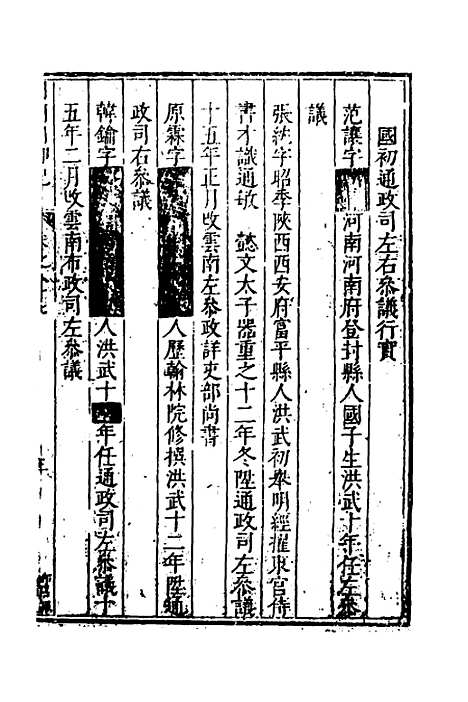 國初通政司左右叅議行實
范讓字 河南河南府登封縣人國子生洪武十年任左叅
議
張紞字昭季陝西西安府富平縣人洪武初舉明經擢東宮侍
書才識通敏 懿文太子器重之十二年冬陞通政司左叅議
十五年正月改雲南左叅政詳吏部尚書
原霖字 人歷翰林院修撰洪武十二年陞通
政司右叅議
韓鑰字 人洪武十 年任通政司左叅議十
五年二月改雲南布政司左叅議